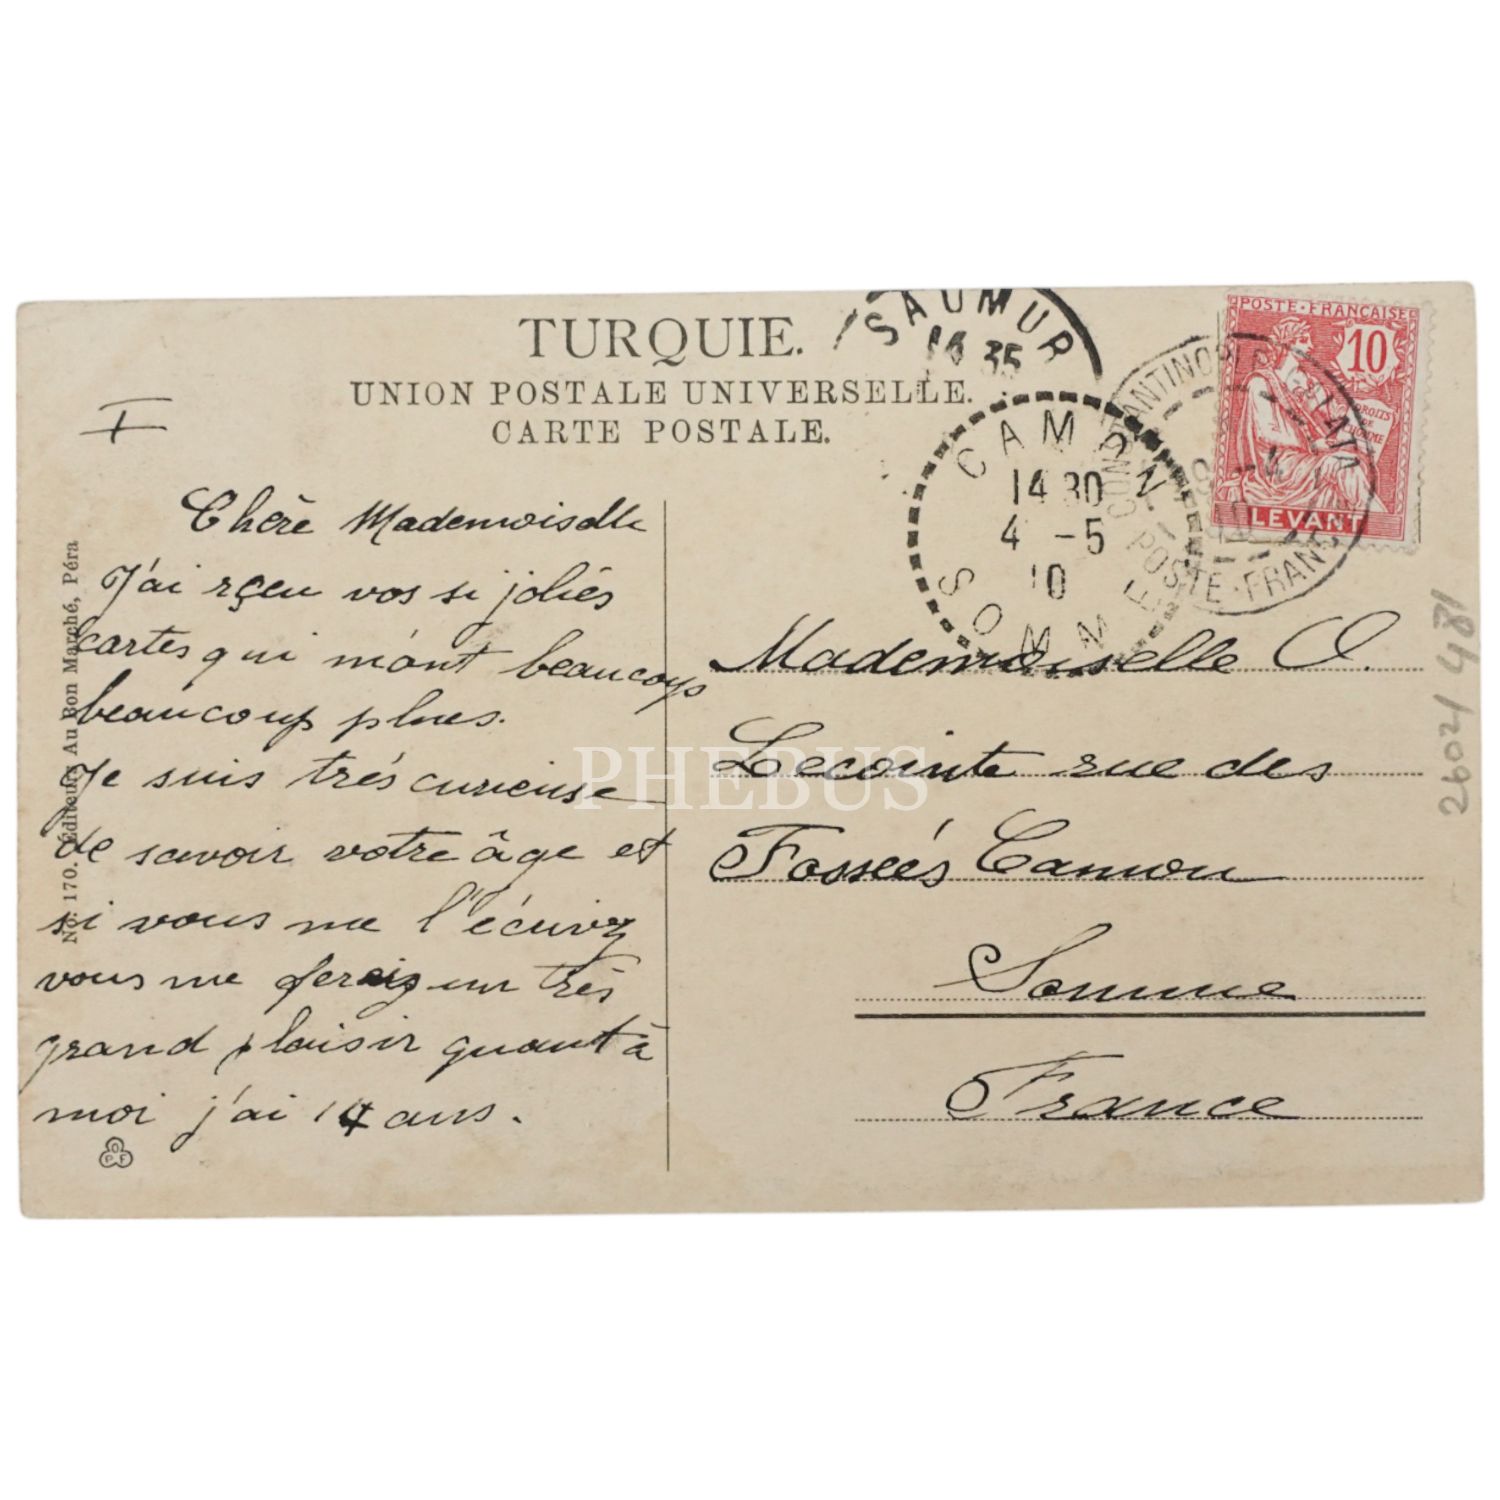 TURQUIE.
UNION POSTALE UNIVERSELLE.
CARTE POSTALE.
SAUMUR
35
CAMON
14 30
4 -5
10
SOMME
CONSTANTINOPLE GALATA
POSTE FRANCAISE
POSTE FRANÇAISE
10
DROITS
DE
L'HOMME
LEVANT
I
Chère Mademoiselle
J'ai rçeu vos si joliés
cartes qui m'ont beaucoup
beaucoup plues.
Je suis trés curieuse
de savoir votre âge et
si vous me l'écrivez
vous me feriez un très
grand plaisir quant à
moi j'ai 14 ans.
Mademoiselle O.
Lecointe rue des
Fosseés Camon
Somme
France
No. 170. Éditeurs Au Bon Marché, Péra
O
P F
PHEBUS